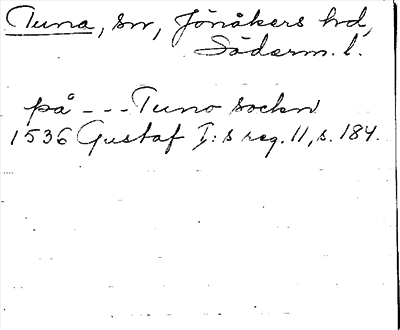 Tuna, sn, Jönåkers hd,
Söderm. l.
på --- Tuno sockn
1536 Gustaf I:s reg. 11, s. 184.